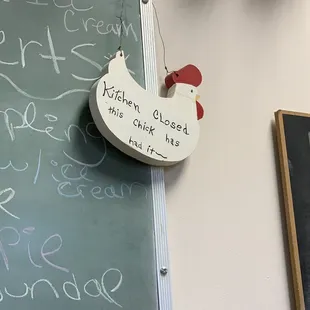 Cream
erts
Kitchen Closed
this Chick has
had it~
w/ice cream
pie
sundae